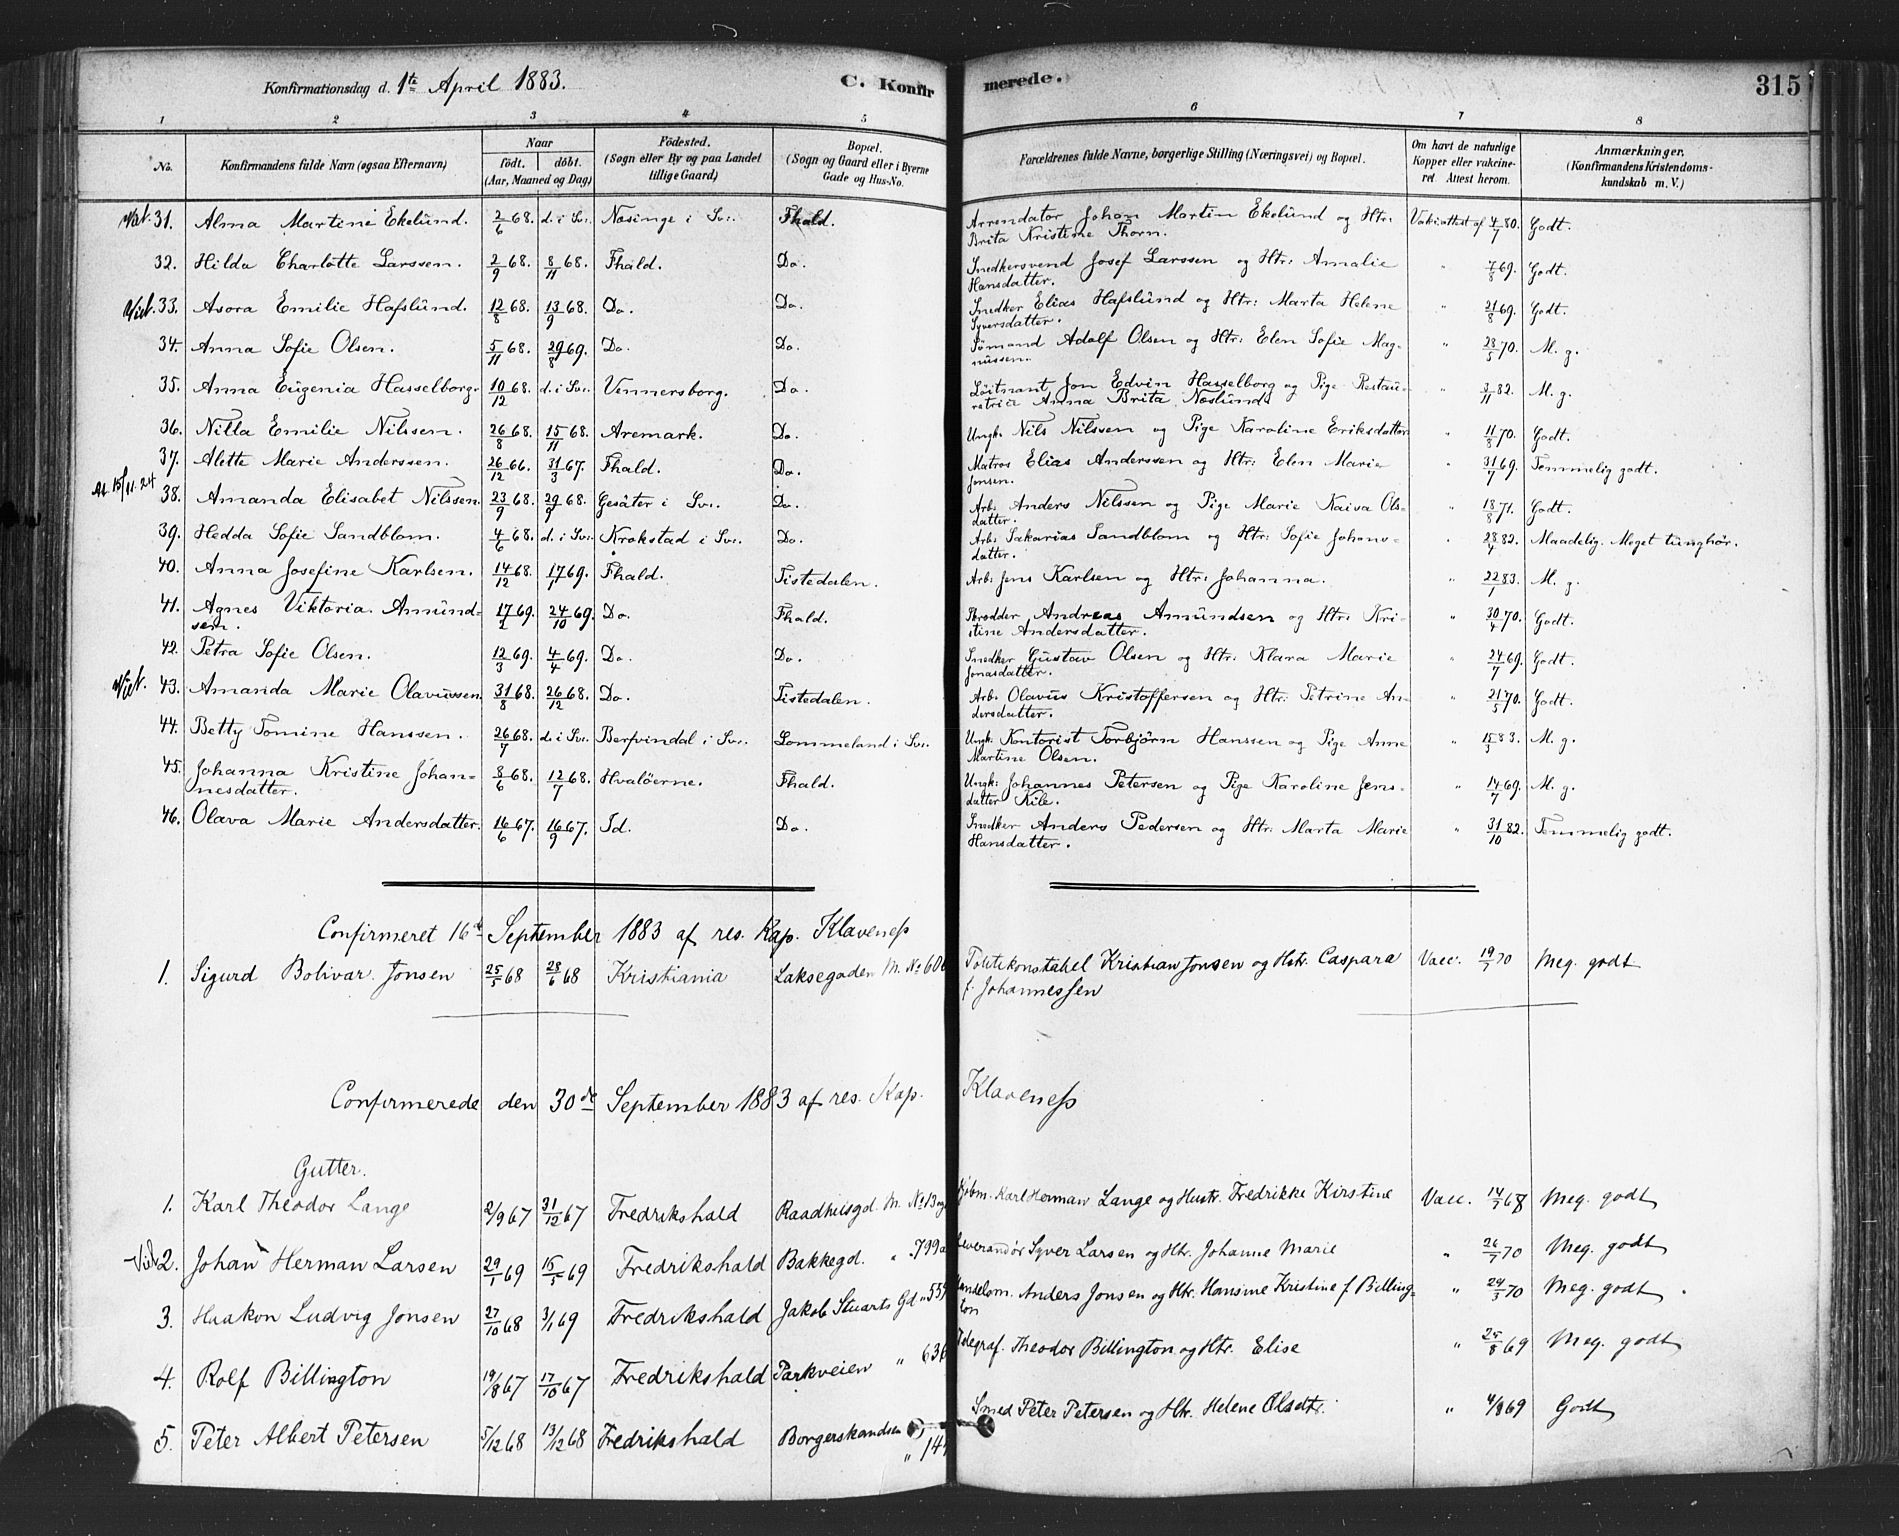 Konfirmationsdag d. 1te April 1883. C. Konfirmerede. 315
1 2 3 4 5 6 7 8
No. Konfirmandens fulde Navn (ogsaa Efternavn) Naar födt. döbt. (Aar, Maaned og Dag) Födested. (Sogn eller By og paa Landet tillige Gaard) Bopæl. (Sogn og Gaard eller i Byerne Gade og Hus-No. Forældrenes fulde Navne, borgerlige Stilling (Næringsvei) og Bopæl. Om havt de naturlige Kopper eller vakcineret. Attest herom. Anmærkninger, (Konfirmandens Kristendomskundskab m. V.)
31. Alma Martine Ekelund. 2/6 68. d. i Sv:. Næsinge i Sv:. Fhald. Arrendator Johan Martin Ekelund og Htr: Brita Kristine Thorn. Vakc:attest af 4/7 80. Godt.
32. Hilda Charlotte Larssen. 2/9 68. 8/11 68. Fhald. Do. Snedkersvend Josef Larssen og Htr: Amalie Hansdatter. " 7/8 69. Godt.
33. Asora Emilie Hafslund. 12/8 68. 13/9 68. Do. Do. Snedker Elias Hafslund og Htr: Marta Helene Syversdatter. " 21/8 69. Godt.
34. Anna Sofie Olsen. 5/11 68. 29/8 69. Do. Do. Sømand Adolf Olsen og Htr: Elen Sofie Magnussen. " 28/5 70. M. g.
35. Anna Eugenia Hasselborg. 10/12 68. d. i Sv:. Vennersborg. Do. Løitnant Jon Edvin Hasselborg og Pige Restauratrice Anna Brita Næslund. " 3/11 82. M. g.
36. Nilla Emilie Nilssen. 26/8 68. 15/11 68. Aremark. Do. Ungk: Nils Nilssen og Pige Karoline Eriksdatter " 11/8 70. Godt.
37. Alette Marie Anderssen. 26/12 66. 31/3 67. Fhald. Do. Matros Elias Anderssen og Htr: Elen Marie Jensen. " 31/7 69. Temmelig godt.
At. 15/11. 24
38. Amanda Elisabet Nilssen. 23/9 68. 29/9 68. Gesäter i Sv:. Do. Arb: Anders Nilssen og Pige Marie Kaisa Olsdatter. " 18/8 71. Godt.
39. Hedda Sofie Sandblom. 4/6 68. d. i Sv:. Krokstad i Sv:. Do. Arb: Sakarias Sandblom og Htr: Sofie Johansdatter. " 28/4 82. Maadelig. Meget tunghør.
40. Anna Josefine Karlsen. 14/12 68. 17/1 69. Fhald. Tistedalen. Arb: Jens Karlsen og Htr: Johanna. " 22/1 83. M. g.
41. Agnes Viktoria Amundsen. 17/2 69. 24/10 69. Do. Fhald. Skrædder Andreas Amundsen og Htr: Kristine Andersdatter. " 30/4 70. Godt.
42. Petra Sofie Olsen. 12/3 69. 4/4 69. Do. Do. Snedker Gustav Olsen og Htr: Klara Marie Jonasdatter. " 24/7 69. Godt.
43. Amanda Marie Olavussen. 31/8 68. 26/12 68. Do. Tistedalen. Arb: Olavus Kristoffersen og Htr: Petrine Andersdatter. " 21/5 70. Godt.
44. Betty Tomine Hanssen. 26/7 68. d. i Sv:. Berfvindal i Sv:. Lommeland i Sv:. Ungk: Kontorist Torbjørn Hanssen og Pige Anne Martine Olsen. " 15/3 83. M. g.
45. Johanna Kristine Johannesdatter. 8/6 68. 12/7 68. Hvaløerne. Fhald. Ungk: Johannes Petersen og Pige Karoline Jensdatter Kile. " 14/7 69. M. g.
46. Olava Marie Andersdatter. 16/6 67. 16/9 67. Id. Do. Snedker Anders Pedersen og Htr: Marta Marie Hansdatter. " 31/10 82. Temmelig godt.
Confirmeret 16de September 1883 af res. Kap. Klaveness
1. Sigurd Bolivar Jonsen 25/5 68 28/6 68 Kristiania Laksegaden M. No 606 Politikonstabel Kristian Jonsen og Hstr. Caspara f. Johannessen Vacc. 19/7 70 Meg. godt
Confirmerede den 30de September 1883 af res. Kap. Klaveness
Gutter.
1. Karl Theodor Lange 2/9 67 31/12 67 Fredrikshald Raadhusgd. M. No 13 Karl Herman Lange og Hustr. Fredrikke Kirstine Vacc. 14/7 68 Meg. godt
2. Johan Herman Larsen 29/1 69 15/5 69 Fredrikshald Bakkegd. " 799 Leverandør Syver Larsen og Htr. Johanne Marie " 26/7 70 Meg. godt
3. Haakon Ludvig Jonsen 27/10 68 3/1 69 Fredrikshald Jakob Stuarts Gd " Anders Jonsen og Htr. Hansine Kristine f. Billington " 24/3 70 Meg. godt.
4. Rolf Billington 19/8 67 17/10 67 Fredrikshald Parkveien " 636 Telegraf. Theodor Billington og Htr. Elise " 25/8 69 Meg. godt
5. Peter Albert Petersen 5/12 68 13/12 68 Fredrikshald Borgerskandsen " Smed Peter Petersen og Htr. Helene Olsdtr. " 4/8 69 Godt